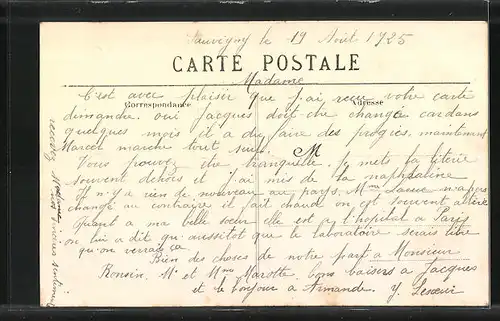 Sauvigny le 19 Août 1925
CARTE POSTALE
Madame
C'est avec plaisir que j'ai reçu votre carte
Correspondance
Adresse
dimanche. oui Jacques doit être changé car dans
quelques mois il a du faire des progrès, maintenant
Marcel marche tout seul.
M
Vous pouvez être tranquille. Je mets la literie
souvent dehors et j'ai mis de la naphtaline
Il n'y a rien de nouveau au pays, Mme n'a pas
changé au contraire il fait chaud on est souvent altéré
Quant a ma belle sœur elle est a l'hopital a Paris
on lui a dit qu'aussitot que le laboratoire serait libre
qu'on verrait ça
Bien des choses de notre part a Monsieur
Ronsin, Mr et Mme Marotte. bons baisers a Jacques
et le bonjour a Armande. Y.
recevez Madame nos sincères sentiments